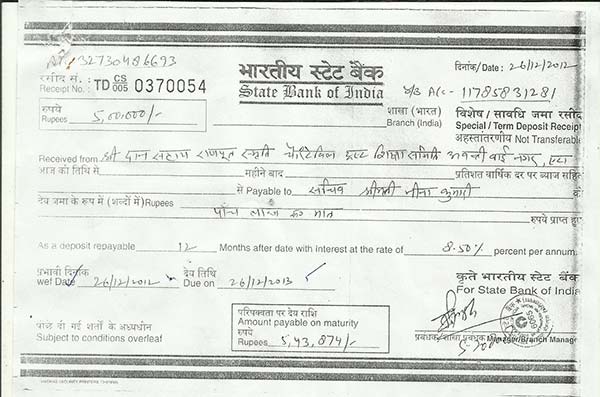 A/c 32730486693
रसीद सं. : TD CS 005 0370054
Receipt No. :
भारतीय स्टेट बैंक
State Bank of India
दिनांक/Date : 26/12/2012
S/B A/c- 11785831281
रूपये
Rupees 5,00,000/-
शाखा (भारत)
Branch (India)
विशेष / सावधि जमा रसीद
Special / Term Deposit Receipt
अहस्तातरणीय Not Transferable
Received from श्री दान सहाय राजपूत स्मृति चैरिटेबिल ट्रस्ट शिक्षा समिति अवन्ती बाई नगर, एटा
आज की तिथि से महीने बाद प्रतिशत वार्षिक दर पर ब्याज सहित
से Payable to सचिव श्रीमती नीना कुमारी को
देय जमा के रूप में (शब्दों में) Rupees पाँच लाख रू0 मात्र रुपये प्राप्त हुए
As a deposit repayable 12 Months after date with interest at the rate of 8.50% percent per annum.
प्रभावी दिनांक देय तिथि
wef Date 26/12/2012 Due on 26/12/2013
कृते भारतीय स्टेट बैंक
For State Bank of India
परिपक्वता पर देय राशि
Amount payable on maturity
रूपये
Rupees 5,43,874/-
पीछे दी गई शर्तों के अध्यधीन
Subject to conditions overleaf
प्रबंधक/शाखा प्रबंधक Manager/Branch Manager